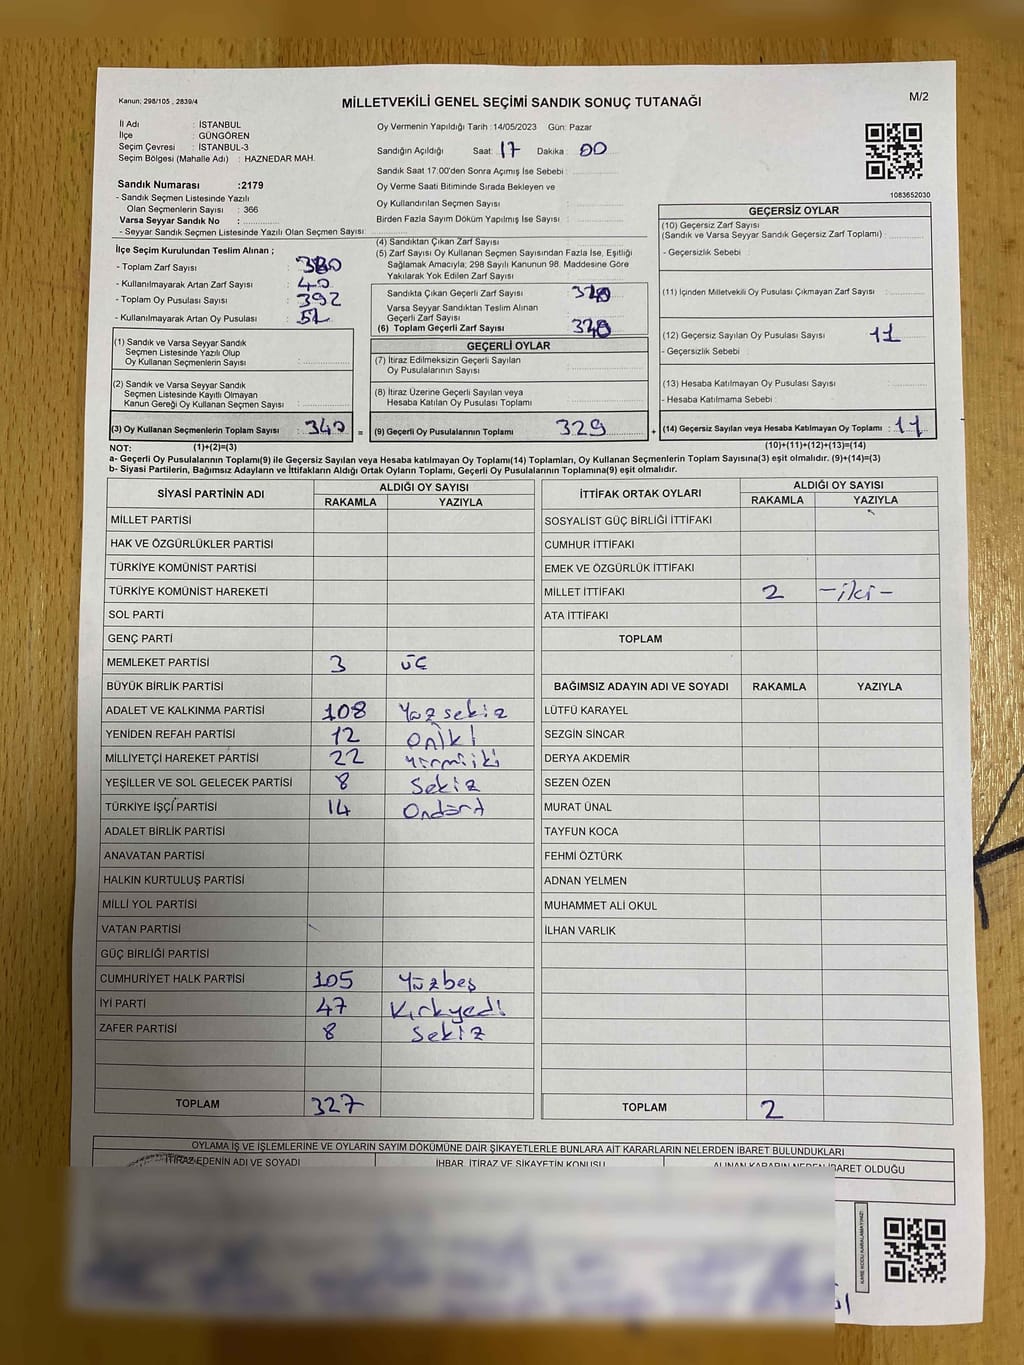 Kanun; 298/105 , 2839/4
MİLLETVEKİLİ GENEL SEÇİMİ SANDIK SONUÇ TUTANAĞI
M/2
İl Adı : İSTANBUL
İlçe : GÜNGÖREN
Seçim Çevresi : İSTANBUL-3
Seçim Bölgesi (Mahalle Adı) : HAZNEDAR MAH.
Sandık Numarası :2179
- Sandık Seçmen Listesinde Yazılı
Olan Seçmenlerin Sayısı : 366
Varsa Seyyar Sandık No :
- Seyyar Sandık Seçmen Listesinde Yazılı Olan Seçmen Sayısı:
Oy Vermenin Yapıldığı Tarih :14/05/2023 Gün: Pazar
Sandığın Açıldığı Saat: 17 Dakika : 00
Sandık Saat 17:00'den Sonra Açımış İse Sebebi :
Oy Verme Saati Bitiminde Sırada Bekleyen ve
Oy Kullandırılan Seçmen Sayısı :
Birden Fazla Sayım Döküm Yapılmış İse Sayısı :
1083652030
İlçe Seçim Kurulundan Teslim Alınan ;
- Toplam Zarf Sayısı : 380
- Kullanılmayarak Artan Zarf Sayısı : 40
- Toplam Oy Pusulası Sayısı : 392
- Kullanılmayarak Artan Oy Pusulası : 52
(1) Sandık ve Varsa Seyyar Sandık
Seçmen Listesinde Yazılı Olup
Oy Kullanan Seçmenlerin Sayısı :
(2) Sandık ve Varsa Seyyar Sandık
Seçmen Listesinde Kayıtlı Olmayan
Kanun Gereği Oy Kullanan Seçmen Sayısı :
(3) Oy Kullanan Seçmenlerin Toplam Sayısı : 340 =
(4) Sandıktan Çıkan Zarf Sayısı :
(5) Zarf Sayısı Oy Kullanan Seçmen Sayısından Fazla İse, Eşitliği
Sağlamak Amacıyla; 298 Sayılı Kanunun 98. Maddesine Göre
Yakılarak Yok Edilen Zarf Sayısı :
Sandıkta Çıkan Geçerli Zarf Sayısı : 340
Varsa Seyyar Sandıktan Teslim Alınan
Geçerli Zarf Sayısı :
(6) Toplam Geçerli Zarf Sayısı : 340
GEÇERLİ OYLAR
(7) İtiraz Edilmeksizin Geçerli Sayılan
Oy Pusulalarının Sayısı :
(8) İtiraz Üzerine Geçerli Sayılan veya
Hesaba Katılan Oy Pusulası Toplamı :
(9) Geçerli Oy Pusulalarının Toplamı : 329 +
GEÇERSİZ OYLAR
(10) Geçersiz Zarf Sayısı
(Sandık ve Varsa Seyyar Sandık Geçersiz Zarf Toplamı) :
- Geçersizlik Sebebi :
(11) İçinden Milletvekili Oy Pusulası Çıkmayan Zarf Sayısı :
(12) Geçersiz Sayılan Oy Pusulası Sayısı : 11
- Geçersizlik Sebebi :
(13) Hesaba Katılmayan Oy Pusulası Sayısı :
- Hesaba Katılmama Sebebi :
(14) Geçersiz Sayılan veya Hesaba Katılmayan Oy Toplamı : 11
NOT: (1)+(2)=(3) (10)+(11)+(12)+(13)=(14)
a- Geçerli Oy Pusulalarının Toplamı(9) ile Geçersiz Sayılan veya Hesaba katılmayan oy Toplamı(14) Toplamları, Oy Kullanan Seçmenlerin Toplam Sayısına(3) eşit olmalıdır. (9)+(14)=(3)
b- Siyasi Partilerin, Bağımsız Adayların ve İttifakların Aldığı Ortak Oyların Toplamı, Geçerli Oy Pusulalarının Toplamına(9) eşit olmalıdır.
SİYASİ PARTİNİN ADI
ALDIĞI OY SAYISI
RAKAMLA YAZIYLA
MİLLET PARTİSİ
HAK VE ÖZGÜRLÜKLER PARTİSİ
TÜRKİYE KOMÜNİST PARTİSİ
TÜRKİYE KOMÜNİST HAREKETİ
SOL PARTİ
GENÇ PARTİ
MEMLEKET PARTİSİ 3 üç
BÜYÜK BİRLİK PARTİSİ
ADALET VE KALKINMA PARTİSİ 108 Yüzsekiz
YENİDEN REFAH PARTİSİ 12 Oniki
MİLLİYETÇİ HAREKET PARTİSİ 22 yirmiiki
YEŞİLLER VE SOL GELECEK PARTİSİ 8 Sekiz
TÜRKİYE İŞÇİ PARTİSİ 14 Ondört
ADALET BİRLİK PARTİSİ
ANAVATAN PARTİSİ
HALKIN KURTULUŞ PARTİSİ
MİLLİ YOL PARTİSİ
VATAN PARTİSİ
GÜÇ BİRLİĞİ PARTİSİ
CUMHURİYET HALK PARTİSİ 105 Yüzbeş
İYİ PARTİ 47 Kırkyedi
ZAFER PARTİSİ 8 Sekiz
TOPLAM 327
İTTİFAK ORTAK OYLARI
ALDIĞI OY SAYISI
RAKAMLA YAZIYLA
SOSYALİST GÜÇ BİRLİĞİ İTTİFAKI
CUMHUR İTTİFAKI
EMEK VE ÖZGÜRLÜK İTTİFAKI
MİLLET İTTİFAKI 2 -iki-
ATA İTTİFAKI
TOPLAM
BAĞIMSIZ ADAYIN ADI VE SOYADI RAKAMLA YAZIYLA
LÜTFÜ KARAYEL
SEZGİN SİNCAR
DERYA AKDEMİR
SEZEN ÖZEN
MURAT ÜNAL
TAYFUN KOCA
FEHMİ ÖZTÜRK
ADNAN YELMEN
MUHAMMET ALİ OKUL
İLHAN VARLIK
TOPLAM 2
OYLAMA İŞ VE İŞLEMLERİNE VE OYLARIN SAYIM DÖKÜMÜNE DAİR ŞİKAYETLERLE BUNLARA AİT KARARLARIN NELERDEN İBARET BULUNDUKLARI
İTİRAZ EDENİN ADI VE SOYADI
İHBAR, İTİRAZ VE ŞİKAYETİN KONUSU
ALINAN KARARIN NEDEN İBARET OLDUĞU